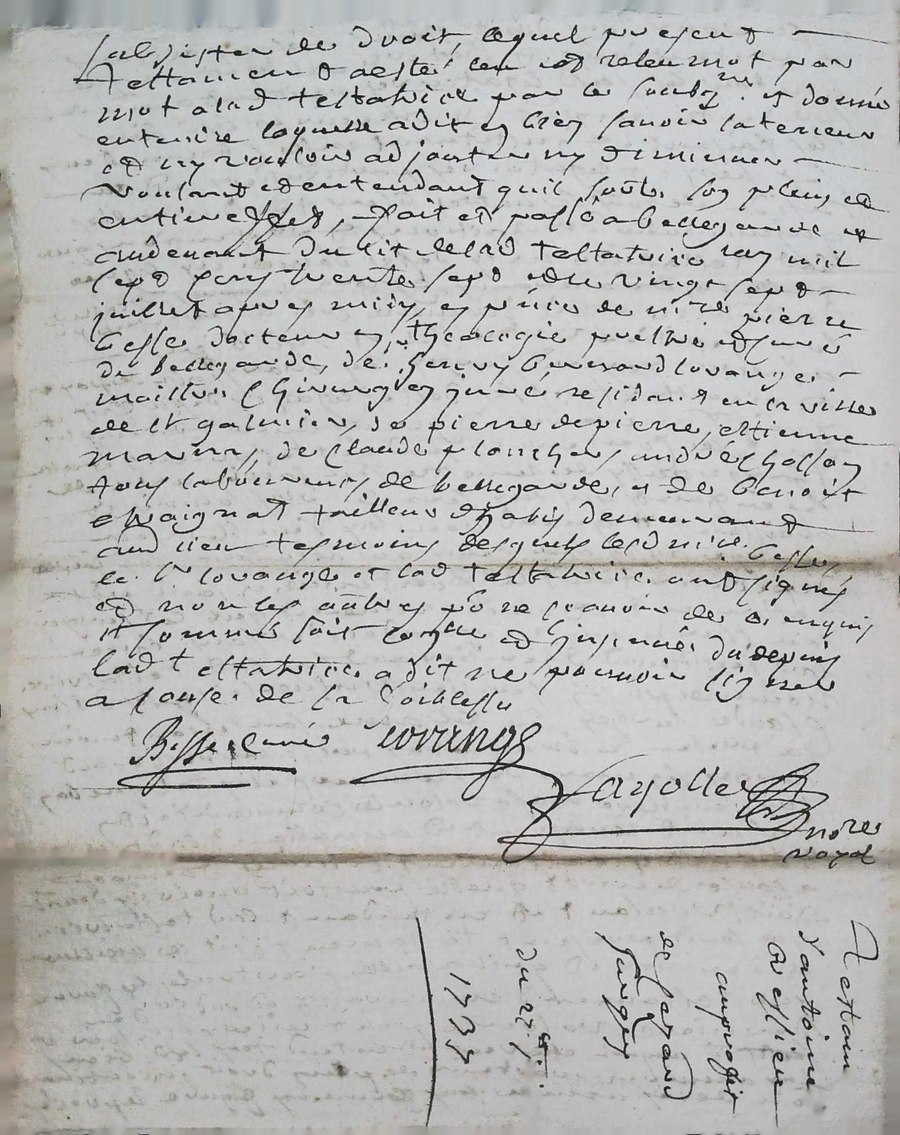 subsister de droit, lequel present
testament a esté leu et releu mot par
mot a lad testatrice par le soub.re et donné
entendre laquelle a dit bien savoir la teneur
et ny vouloir adjouster ny diminuer
voulant et entendant quil sorte son plein et
entier effet, fait et passé a bellegarde et
audevant du lit de lad testatrice lan mil
sept cens trente sept et le vingt sept
juillet apres midy, en p.nce de m.re pierre
besse docteur en theologie prestre et curé
de bellegarde, de s.r bernard lovange
maitre chirurgien juré residant en la ville
de st galmier, de pierre depierre, estienne
de claude plancher, andré
tous laboureurs de bellegarde, et de benoit
chaignat tailleur dhabis demeurant
aud lieu tesmoins desquels led m.re besse
le s.r lovange et lad testatrice ont signés
et non les autres p.r ne scavoir de ce enquis
et sommés soit et insinué du depuis
lad testatrice a dit ne pouvoir signer
a cause de sa foiblesse
Besse curé lovange
Fayolle
no.re
royal
Testam
dantoine
au profit
de
du 27e
1737